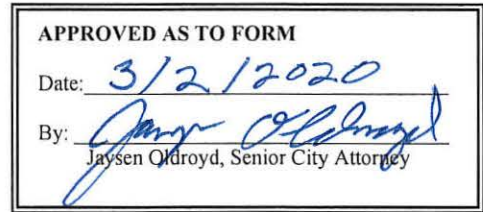 APPROVED AS TO FORM
Date: 3/2/2020
By: Jaysen Oldroyd
Jaysen Oldroyd, Senior City Attorney